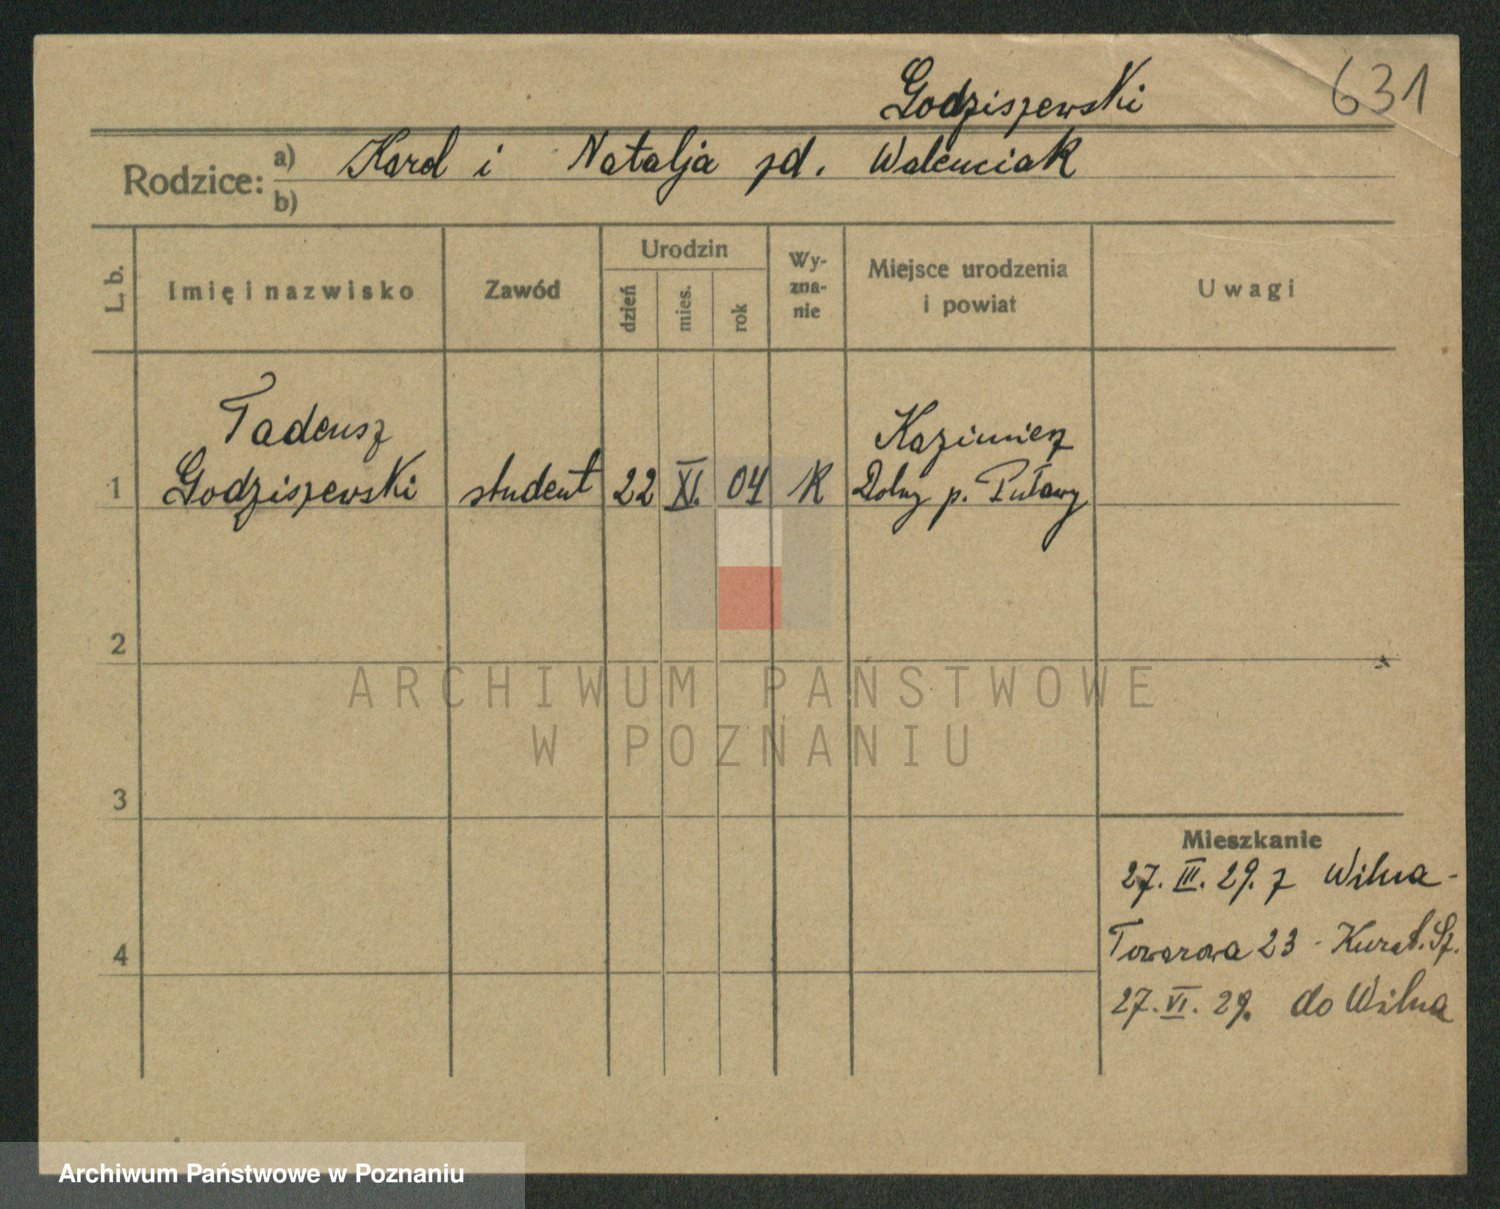 Godziszewski 631
Rodzice: a) Karol i Natalja zd. Walenciak
b)
L. b. Imię i nazwisko Zawód Urodzin dzień mies. rok Wy-zna-nie Miejsce urodzenia i powiat Uwagi
Tadeusz Kazimierz
1 Godziszewski student 22 XI. 04 K Dolny p. Puławy
2
ARCHIWUM PAŃSTWOWE
W POZNANIU
3
Mieszkanie
27. III. 29. z Wilna -
4 Towarowa 23 - Kurat. Sz.
27. VI. 29. do Wilna
Archiwum Państwowe w Poznaniu